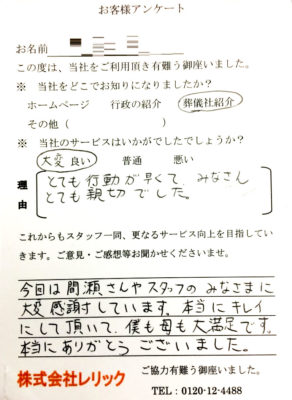 お客様アンケート
お名前
この度は、当社をご利用頂き有難う御座いました。
※ 当社をどこでお知りになりましたか?
ホームページ 行政の紹介 葬儀社紹介
その他( )
※ 当社のサービスはいかがでしたでしょうか?
大変 良い 普通 悪い
理由
とても行動が早くて、みなさん
とても親切でした。
これからもスタッフ一同、更なるサービス向上を目指してい
きます。ご意見・ご感想等お聞かせくださいませ。
今回は間瀬さんやスタッフのみなさまに
大変感謝しています。本当にキレイ
にして頂いて、僕も母も大満足です。
本当にありがとうございました。
株式会社レリック
ご協力有難う御座いました。
TEL:0120-12-4488